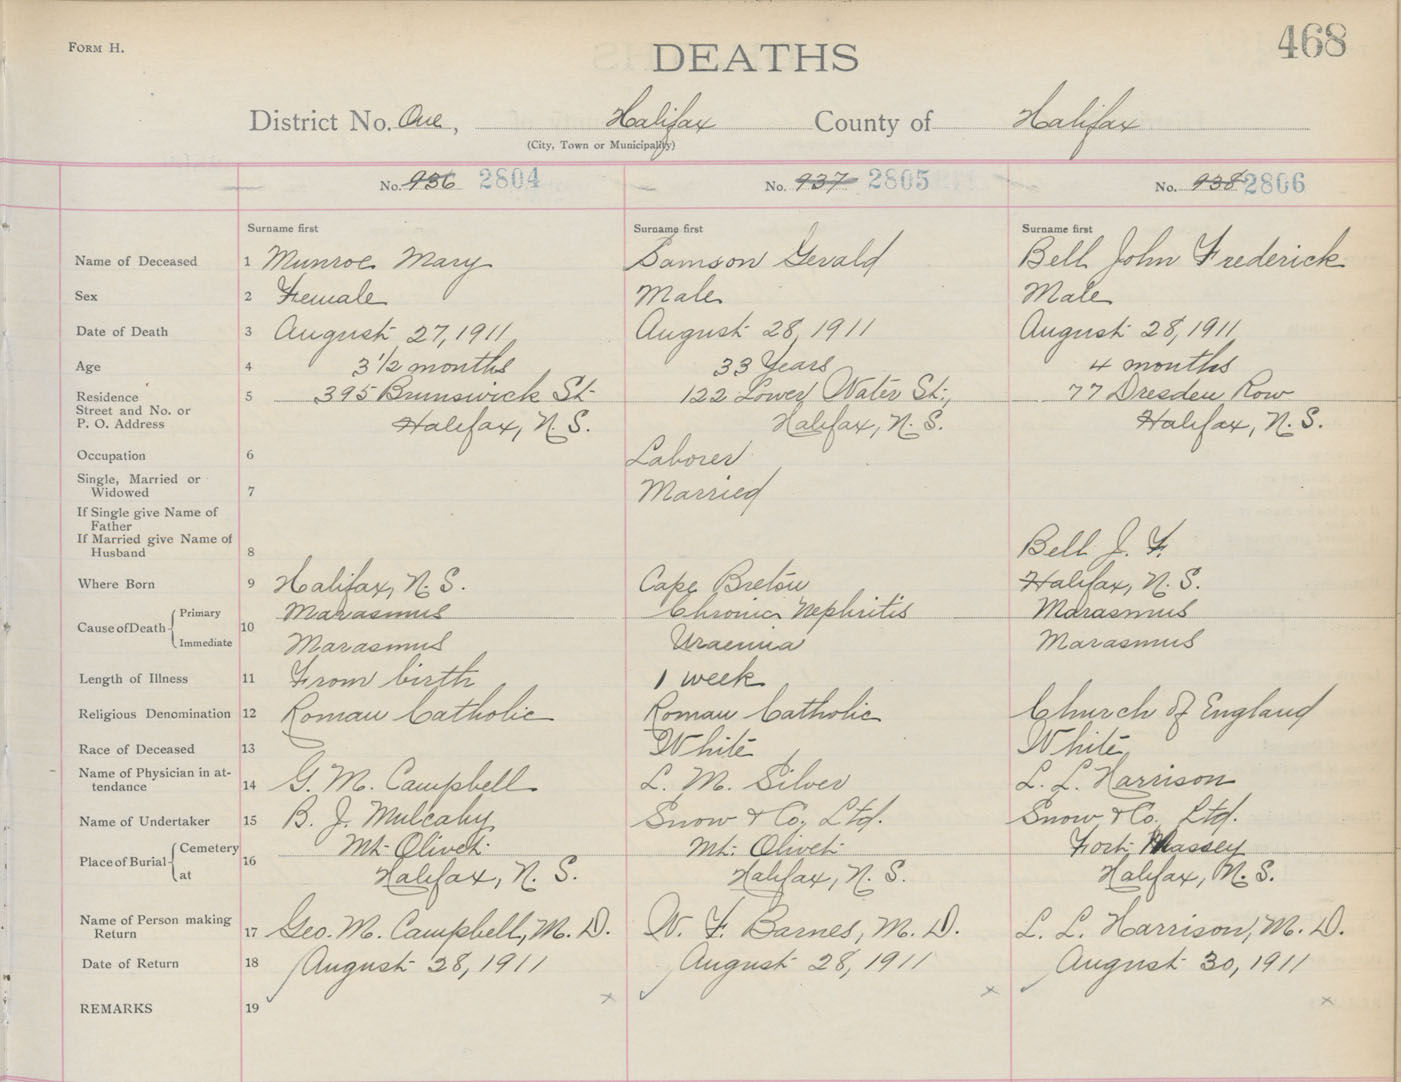 FORM H.
DEATHS
468
District No. One, Halifax County of Halifax
(City, Town or Municipality)
No. 936 2804 No. 937 2805 No. 938 2806
Surname first Surname first Surname first
Name of Deceased 1 Munroe Mary Samson Gerald Bell John Frederick
Sex 2 Female Male Male
Date of Death 3 August 27, 1911 August 28, 1911 August 28, 1911
Age 4 3 1/2 months 33 Years 4 months
Residence 5 395 Brunswick St. 122 Lower Water St., 77 Dresden Row
Street and No. or
P. O. Address Halifax, N. S. Halifax, N. S. Halifax, N. S.
Occupation 6 Laborer
Single, Married or
Widowed 7 Married
If Single give Name of
Father
If Married give Name of
Husband 8 Bell J. F.
Where Born 9 Halifax, N. S. Cape Breton Halifax, N. S.
Cause of Death Primary 10 Marasmus Chronic Nephritis Marasmus
Immediate Marasmus Uraemia Marasmus
Length of Illness 11 From birth 1 week
Religious Denomination 12 Roman Catholic Roman Catholic Church of England
Race of Deceased 13 White White
Name of Physician in at-
tendance 14 G. M. Campbell L. M. Silver L. L. Harrison
Name of Undertaker 15 B. J. Mulcahy Snow & Co., Ltd. Snow & Co., Ltd.
Place of Burial Cemetery 16 Mt. Olivet Mt. Olivet Fort Massey
at Halifax, N. S. Halifax, N. S. Halifax, N. S.
Name of Person making
Return 17 Geo. M. Campbell, M. D. W. F. Barnes, M. D. L. L. Harrison, M. D.
Date of Return 18 August 28, 1911 August 28, 1911 August 30, 1911
REMARKS 19